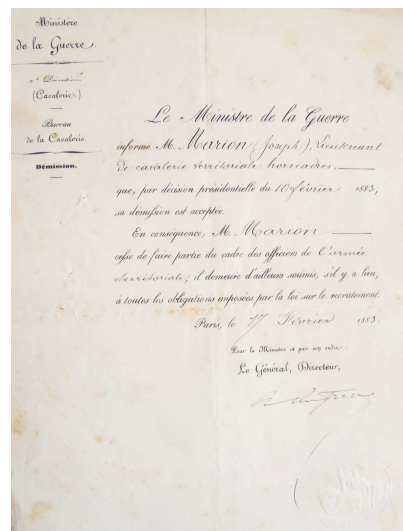 Ministère
de la Guerre.
Direction
(Cavalerie.)
Bureau
de la Cavalerie.
Démission.
Le Ministre de la Guerre
informe M. Marion (Joseph), Lieutenant
de cavalerie territoriale hors cadres,
que, par décision présidentielle du 10 février 1883,
sa démission est acceptée.
En conséquence, M. Marion
cesse de faire partie du cadre des officiers de l'armée
territoriale; il demeure d'ailleurs soumis, s'il y a lieu,
à toutes les obligations imposées par la loi sur le recrutement.
Paris, le 17 Février 1883.
Pour le Ministre et par son ordre:
Le Général, Directeur,